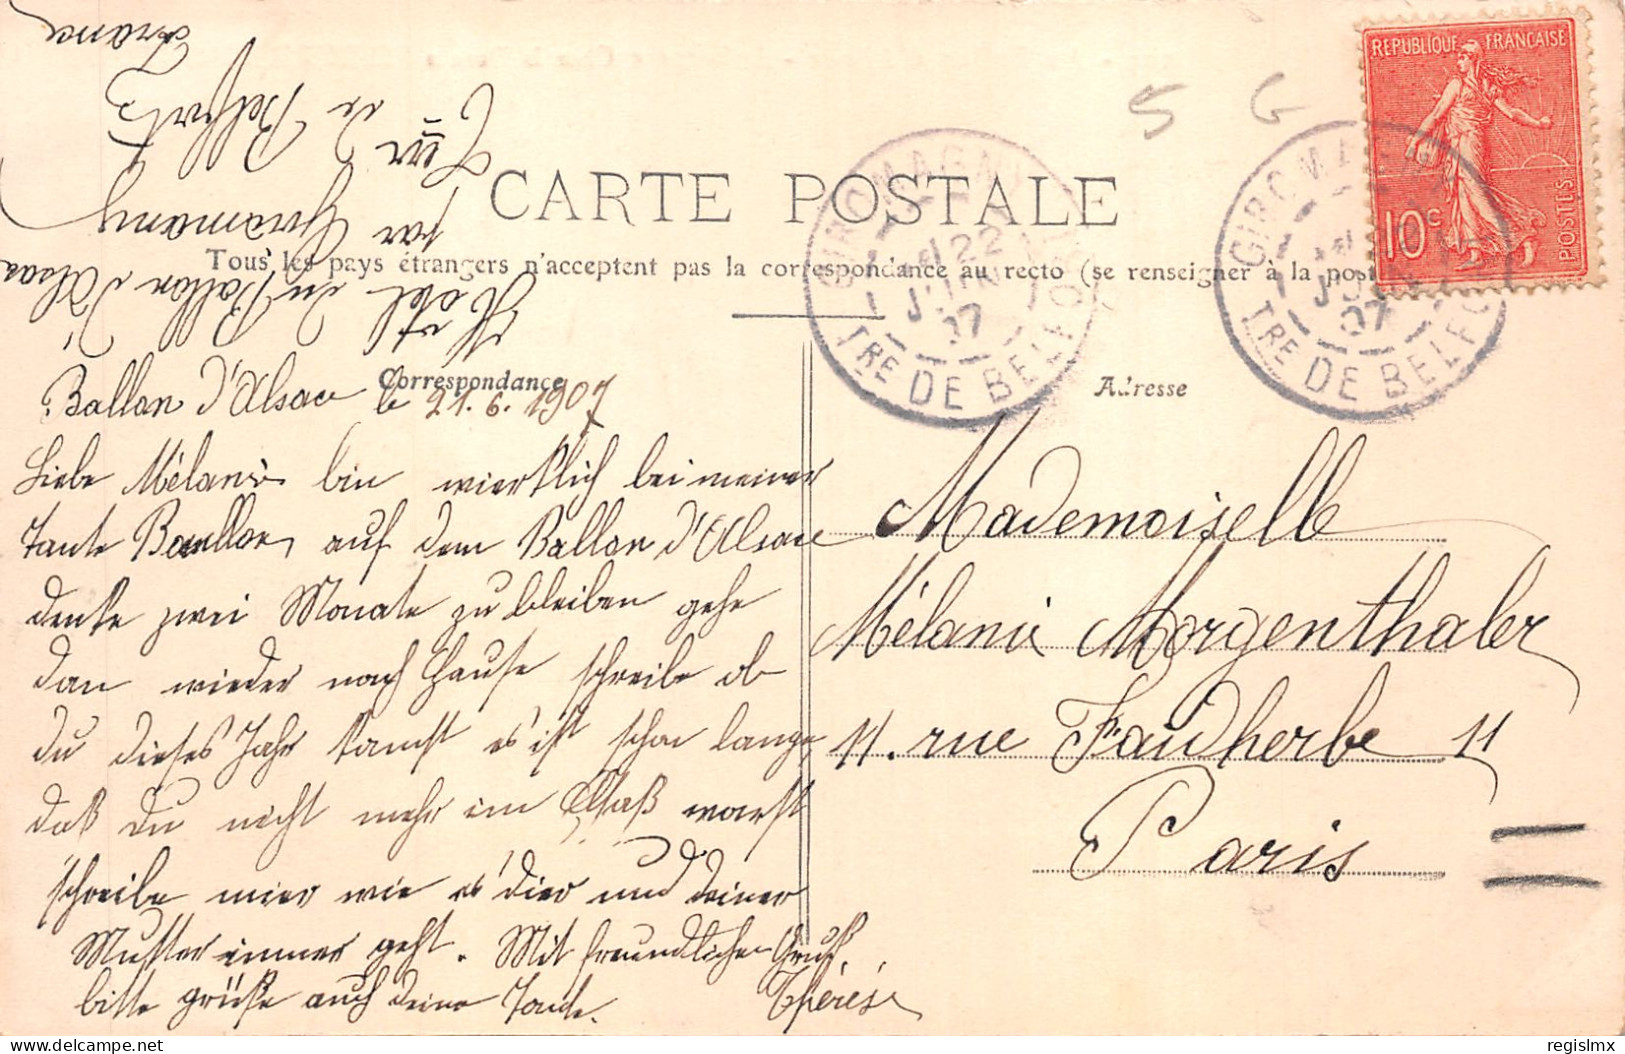 RÉPUBLIQUE FRANÇAISE
10c
POSTES
5 G
CARTE POSTALE
Tous les pays étrangers n'acceptent pas la correspondance au recto (se renseigner à la post
GIROMAGNY
22
JUIN
07
TRE DE BELFORT
GIROMAGNY
JUIN
07
TRE DE BELFO
Hôtel du Ballon d'Alsace
par Giromany
Terr de Belfort
France
Correspondance
Adresse
Ballon d'Alsace le 21.6.1907
Liebe Mélanie bin wierklich bei meiner
Tante auf dem Ballon d'Alsace
denke zwei Monate zu bleiben gehe
dan wieder nach Hause schreibe ob
du dieses Jahr kamst es ist schon lange
daß Du nicht mehr im Elsaß warst
schreibe mier wie es dier und deiner
Mutter immer geht. Mit freundlichen Gruß.
bitte grüße auch deine Tante. Thérèse
Mademoiselle
Mélanie Morgenthaler
11. rue Faidherbe 11
Paris
delcampe.net
regislmx